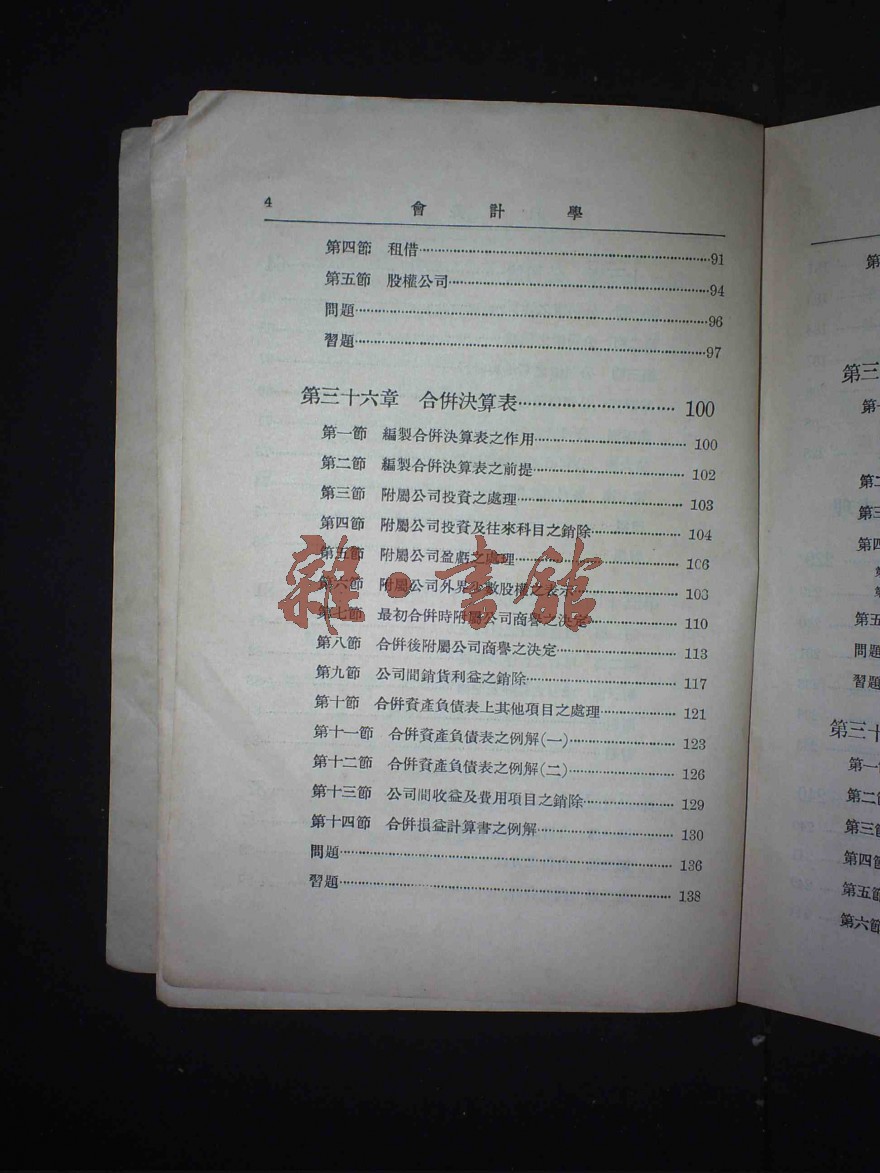 4 會計學
第四節 租借……91
第五節 股權公司……94
問題……96
習題……97
第三十六章 合併決算表……100
第一節 編製合併決算表之作用……100
第二節 編製合併決算表之前提……102
第三節 附屬公司投資之處理……103
第四節 附屬公司投資及往來科目之銷除……104
第五節 附屬公司盈虧之處理……106
第六節 附屬公司外界少數股權之表示……108
第七節 最初合併時附屬公司商譽之決定……110
第八節 合併後附屬公司商譽之決定……113
第九節 公司間銷貨利益之銷除……117
第十節 合併資產負債表上其他項目之處理……121
第十一節 合併資產負債表之例解(一)……123
第十二節 合併資產負債表之例解(二)……126
第十三節 公司間收益及費用項目之銷除……129
第十四節 合併損益計算書之例解……130
問題……136
習題……138
雜·書館
第三
第一
第二
第三
第四
第五
問題
習題
第三十
第一
第二節
第三節
第四節
第五節
第六節